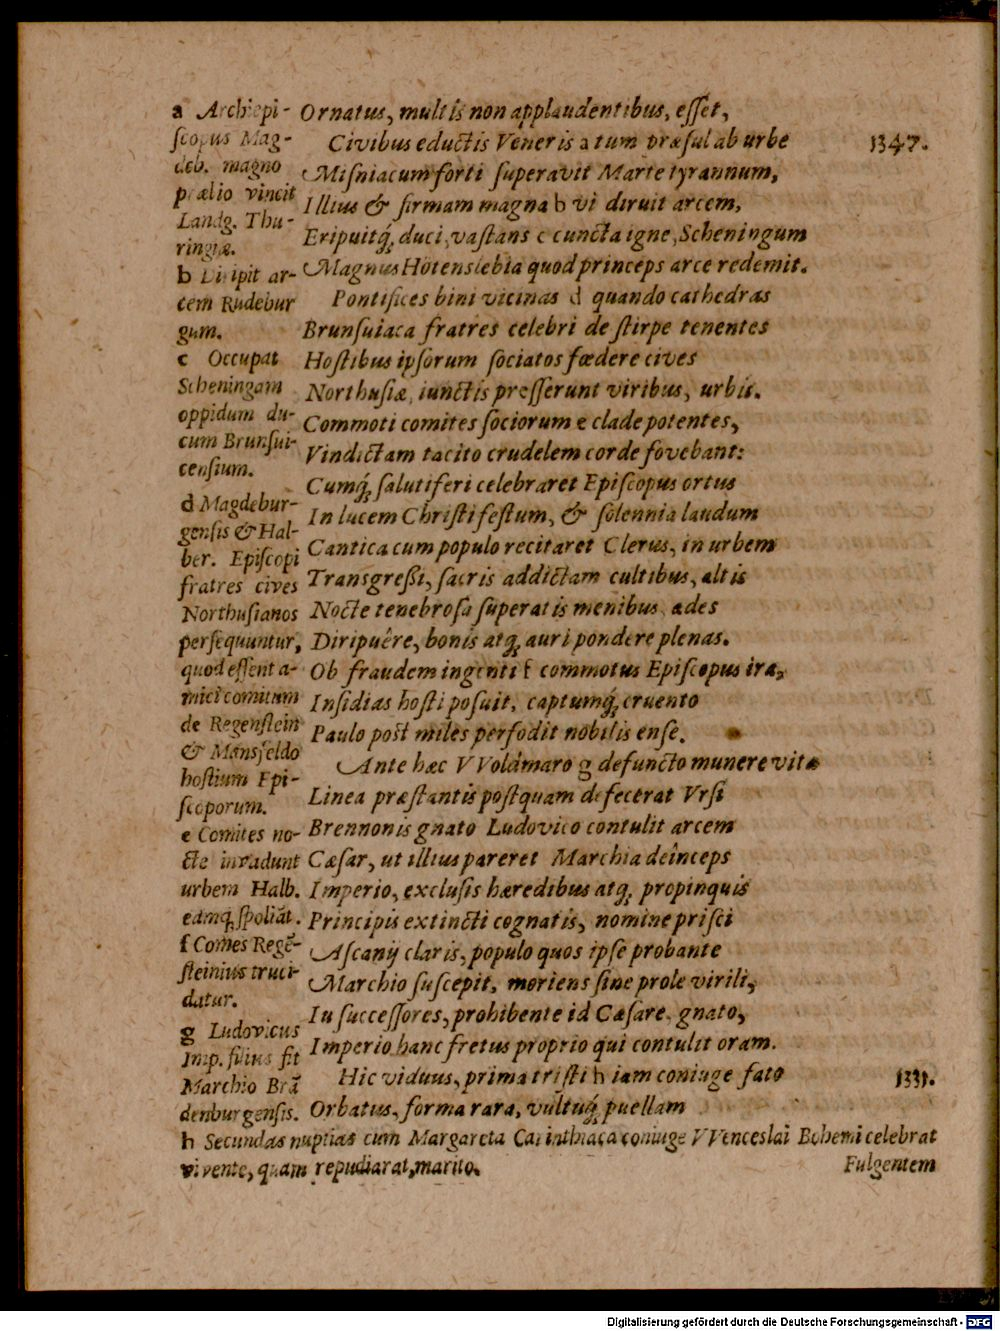 Ornatus, multis non applaudentibus, eſſet,
Civibus eductis Veneris a tum præſul ab urbe
1347.
Miſniacum forti ſuperavit Marte tyrannum,
Illius & firmam magna b vi diruit arcem,
Eripuitq́; duci, vaſtans c cuncta igne, Scheningum
Magnus Hötenslebia quod princeps arce redemit.
Pontifices bini vicinas d quando cathedras
Brunſuiaca fratres celebri de ſtirpe tenentes
Hoſtibus ipſorum ſociatos fœdere cives
Northuſiæ, iunctis preſſerunt viribus, urbis.
Commoti comites ſociorum e clade potentes,
Vindictam tacito crudelem corde fovebant:
Cumq́; ſalutiferi celebraret Epiſcopus ortus
In lucem Chriſti feſtum, & ſolennia laudum
Cantica cum populo recitaret Clerus, in urbem
Transgreßi, ſacris addictam cultibus, altis
Nocte tenebroſa ſuperatis menibus, ædes
Diripuêre, bonis atq; auri pondere plenas.
Ob fraudem ingenti f commotus Epiſcopus ira,
Inſidias hoſti poſuit, captumq́; cruento
Paulo poſt miles perfodit nobilis enſe.
Ante hæc VVoldmaro g defuncto munere vitæ
Linea præſtantis poſtquam defecerat Vrſi
Brennonis gnato Ludovico contulit arcem
Cæſar, ut illius pareret Marchia deînceps
Imperio, excluſis hæredibus atq; propinquis
Principis extincti cognatis, nomine priſci
Aſcanij claris, populo quos ipſe probante
Marchio ſuſcepit, moriens ſine prole virili,
In ſucceſſores, prohibente id Cæſare, gnato,
Imperio hanc fretus proprio qui contulit oram.
Hic viduus, prima triſti h iam coniuge fato
1331.
Orbatus, forma rara, vultuq́; puellam
a Archiepi-
ſcopus Mag-
deb. magno
prælio vincit
Landg. Thu-
ringiæ.
b Diripit ar-
cem Rudebur
gum.
c Occupat
Scheningam
oppidum du-
cum Brunſui-
cenſium.
d Magdebur-
genſis & Hal-
ber. Epiſcopi
fratres cives
Northuſianos
perſequuntur,
quod eſſent a-
mici comitum
de Regenſtein
& Mansfeldo
hoſtium Epi-
ſcoporum.
e Comites no-
cte invadunt
urbem Halb.
eamq; ſpoliāt.
f Comes Regē-
ſteinius truci-
datur.
g Ludovicus
Imp. filius fit
Marchio Brā
denburgenſis.
h Secundas nuptias cum Margareta Carinthiaca coniuge VVenceslai Bohemi celebrat
vivente, quam repudiarat, marito.
Fulgentem
Digitalisierung gefördert durch die Deutsche Forschungsgemeinschaft - DFG